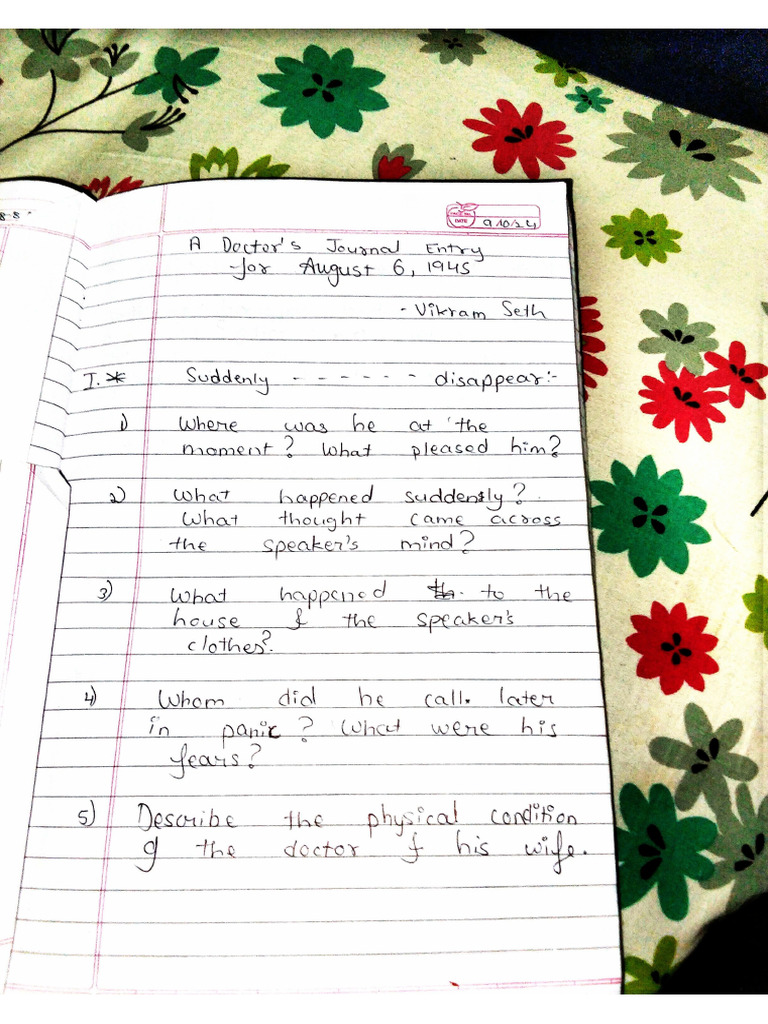 8-8'
DATE 9.10.24
A Doctor's Journal Entry
for August 6, 1945
- Vikram Seth
I. * Suddenly - - - - - - disappear:-
1) Where was he at the
moment? What pleased him?
2) What happened suddenly?
What thought came across
the speaker's mind?
3) What happened to the
house & the speaker's
clothes?
4) Whom did he call later
in panic? What were his
fears?
5) Describe the physical condition
of the doctor & his wife.